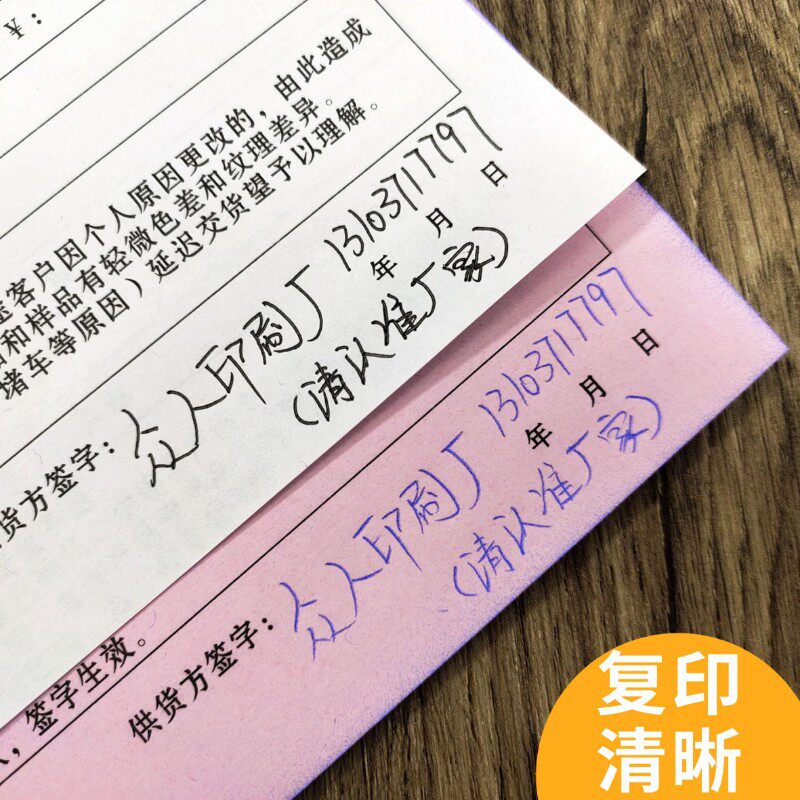 ¥：
签客户因个人原因更改的，由此造成
和样品有轻微色差和纹理差异。
堵车等原因）延迟交货望予以理解。
货方签字：众人印刷厂 13103717797
年 月 日
（请认准厂家）
，签字生效。
供货方签字：众人印刷厂 13103717797
年 月 日
（请认准厂家）
复印
清晰